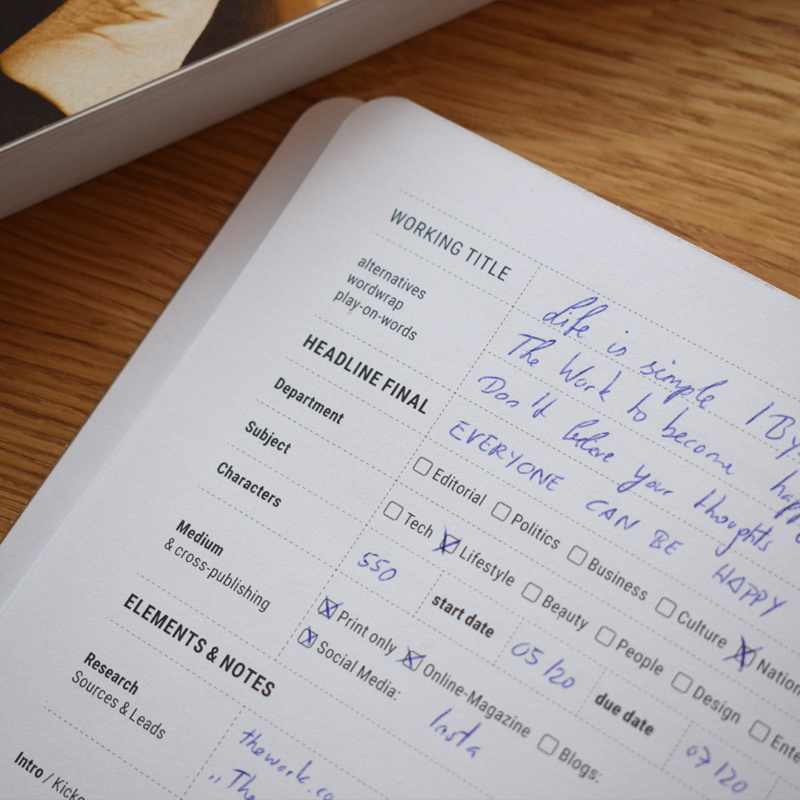 WORKING TITLE
Life is simple / By
alternatives
wordwrap
play-on-words
The Work to become
Don't believe your thoughts
HEADLINE FINAL
EVERYONE CAN BE HAPPY
Department
Editorial Politics Business Culture
Subject
Tech Lifestyle Beauty People Design
Characters
550 start date 05/20 due date 07/20
Medium
& cross-publishing
Print only Online-Magazine Blogs:
Social Media: Insta
ELEMENTS & NOTES
Research
Sources & Leads
thework.co
"The
Intro /